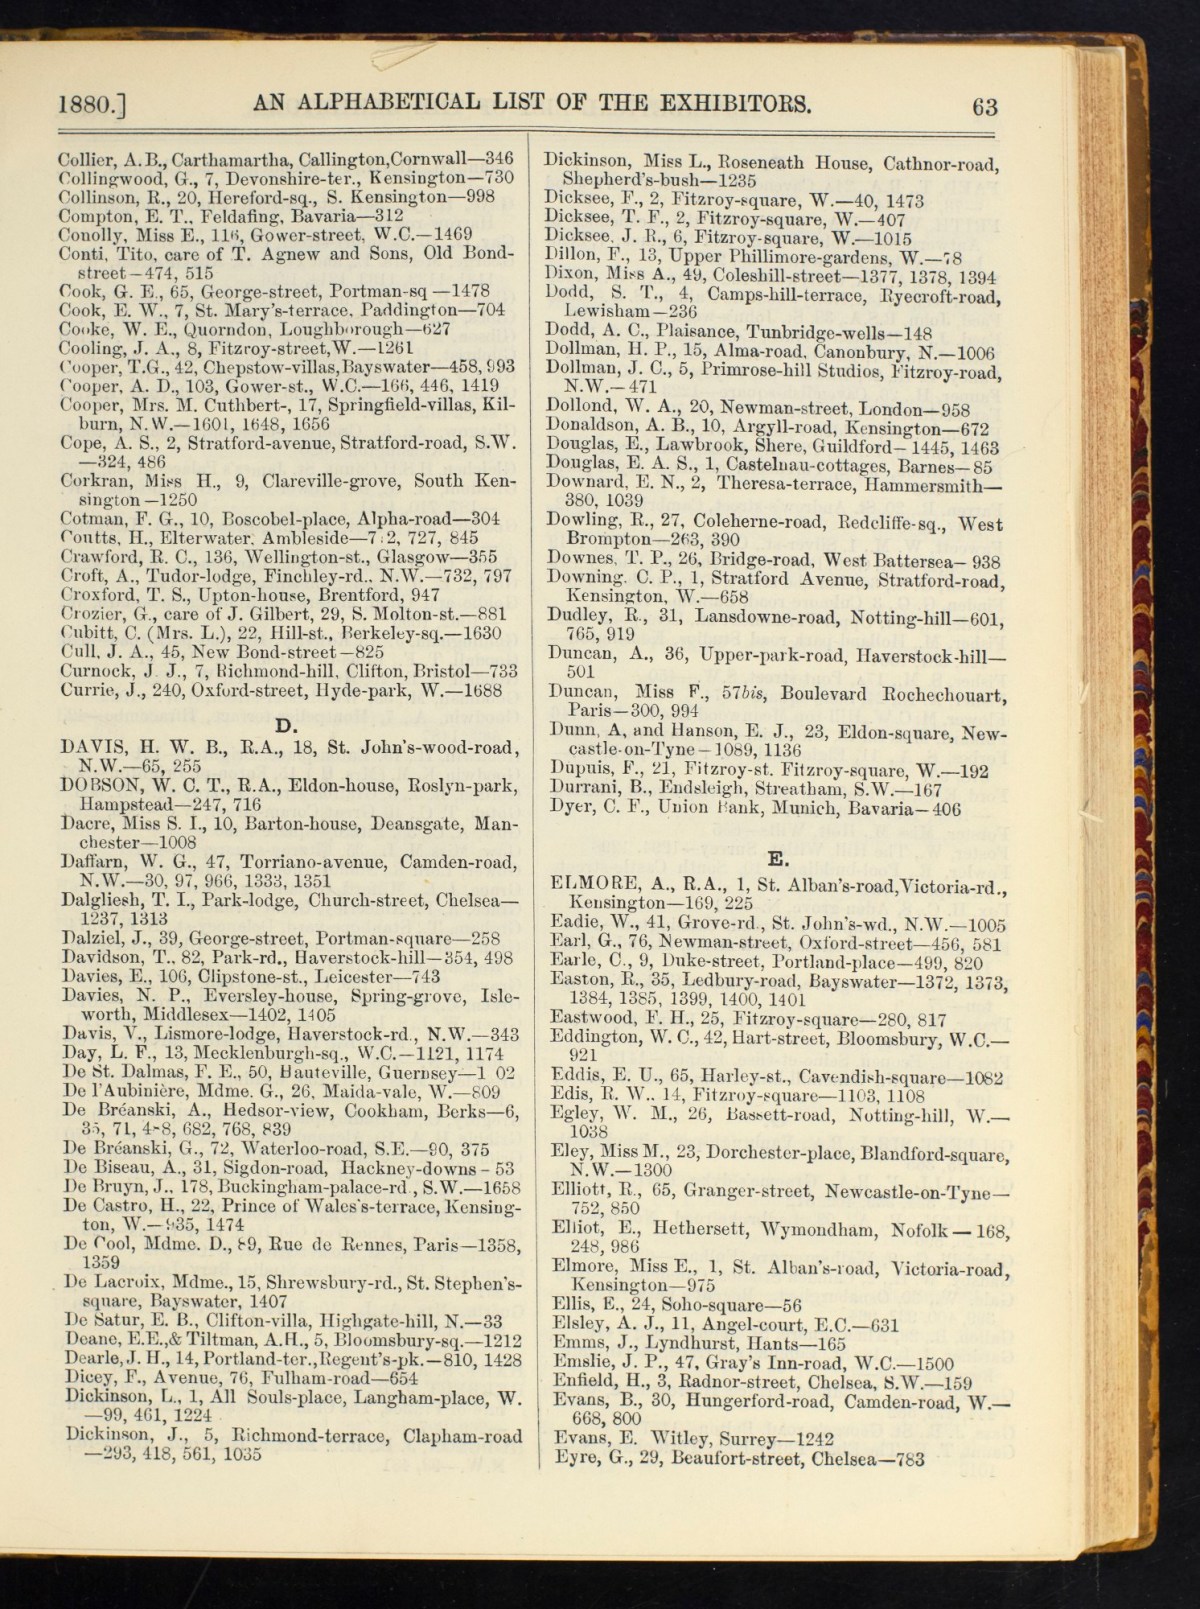 1880.] AN ALPHABETICAL LIST OF THE EXHIBITORS. 63
Collier, A.B., Carthamartha, Callington,Cornwall—346
Collingwood, G., 7, Devonshire-ter., Kensington—730
Collinson, R., 20, Hereford-sq., S. Kensington—998
Compton, E. T., Feldafing, Bavaria—312
Conolly, Miss E., 116, Gower-street, W.C.—1469
Conti, Tito, care of T. Agnew and Sons, Old Bond-
street—474, 515
Cook, G. E., 65, George-street, Portman-sq—1478
Cook, E. W., 7, St. Mary's-terrace, Paddington—704
Cooke, W. E., Quorndon, Loughborough—627
Cooling, J. A., 8, Fitzroy-street,W.—1261
Cooper, T.G., 42, Chepstow-villas,Bayswater—458, 993
Cooper, A. D., 103, Gower-st., W.C.—166, 446, 1419
Cooper, Mrs. M. Cuthbert-, 17, Springfield-villas, Kil-
burn, N.W.—1601, 1648, 1656
Cope, A. S., 2, Stratford-avenue, Stratford-road, S.W.
—324, 486
Corkran, Miss H., 9, Clareville-grove, South Ken-
sington—1250
Cotman, F. G., 10, Boscobel-place, Alpha-road—304
Coutts, H., Elterwater, Ambleside—, 727, 845
Crawford, R. C., 136, Wellington-st., Glasgow—355
Croft, A., Tudor-lodge, Finchley-rd.. N.W.—732, 797
Croxford, T. S., Upton-house, Brentford, 947
Crozier, G., care of J. Gilbert, 29, S. Molton-st.—881
Cubitt, C. (Mrs. L.), 22, Hill-st., Berkeley-sq.—1630
Cull, J. A., 45, New Bond-street—825
Curnock, J. J., 7, Richmond-hill, Clifton, Bristol—733
Currie, J., 240, Oxford-street, Hyde-park, W.—1688
D.
DAVIS, H. W. B., R.A., 18, St. John's-wood-road,
N.W.—65, 255
DOBSON, W. C. T., R.A., Eldon-house, Roslyn-park,
Hampstead—247, 716
Dacre, Miss S. I., 10, Barton-house, Deansgate, Man-
chester—1008
Daffarn, W. G., 47, Torriano-avenue, Camden-road,
N.W.—30, 97, 966, 1333, 1351
Dalgliesh, T. I., Park-lodge, Church-street, Chelsea—
1237, 1313
Dalziel, J., 39, George-street, Portman-square—258
Davidson, T.. 82, Park-rd., Haverstock-hill—354, 498
Davies, E., 106, Clipstone-st., Leicester—743
Davies, N. P., Eversley-house, Spring-grove, Isle-
worth, Middlesex—1402, 1405
Davis, V., Lismore-lodge, Haverstock-rd., N.W.—343
Day, L. F., 13, Mecklenburgh-sq., W.C.—1121, 1174
De St. Dalmas, F. E., 50, Hauteville, Guernsey—1 02
De l'Aubinière, Mdme. G., 26, Maida-vale, W.—809
De Bréanski, A., Hedsor-view, Cookham, Berks—6,
35, 71, 488, 682, 768, 839
De Bréanski, G., 72, Waterloo-road, S.E.—90, 375
De Biseau, A., 31, Sigdon-road, Hackney-downs—53
De Bruyn, J., 178, Buckingham-palace-rd., S.W.—1658
De Castro, H., 22, Prince of Wales's-terrace, Kensing-
ton, W.—935, 1474
De Cool, Mdme. D., 89, Rue de Rennes, Paris—1358,
1359
De Lacroix, Mdme., 15, Shrewsbury-rd., St. Stephen's-
square, Bayswater, 1407
De Satur, E. B., Clifton-villa, Highgate-hill, N.—33
Deane, E.E.,& Tiltman, A.H., 5, Bloomsbury-sq.—1212
Dearle, J. H., 14, Portland-ter.,Regent's-pk.—810, 1428
Dicey, F., Avenue, 76, Fulham-road—654
Dickinson, L., 1, All Souls-place, Langham-place, W.
—99, 461, 1224
Dickinson, J., 5, Richmond-terrace, Clapham-road
—293, 418, 561, 1035
Dickinson, Miss L., Roseneath House, Cathnor-road,
Shepherd's-bush—1235
Dicksee, F., 2, Fitzroy-square, W.—40, 1473
Dicksee, T. F., 2, Fitzroy-square, W.—407
Dicksee, J. R., 6, Fitzroy-square, W.—1015
Dillon, F., 13, Upper Phillimore-gardens, W.—78
Dixon, Miss A., 49, Coleshill-street—1377, 1378, 1394
Dodd, S. T., 4, Camps-hill-terrace, Ryecroft-road,
Lewisham—236
Dodd, A. C., Plaisance, Tunbridge-wells—148
Dollman, H. P., 15, Alma-road, Canonbury, N.—1006
Dollman, J. C., 5, Primrose-hill Studios, Fitzroy-road,
N.W.—471
Dollond, W. A., 20, Newman-street, London—958
Donaldson, A. B., 10, Argyll-road, Kensington—672
Douglas, E., Lawbrook, Shere, Guildford—1445, 1463
Douglas, E. A. S., 1, Castelnau-cottages, Barnes—85
Downard, E. N., 2, Theresa-terrace, Hammersmith—
380, 1039
Dowling, R., 27, Coleherne-road, Redcliffe-sq., West
Brompton—263, 390
Downes, T. P., 26, Bridge-road, West Battersea—938
Downing, C. P., 1, Stratford Avenue, Stratford-road,
Kensington, W.—658
Dudley, R., 31, Lansdowne-road, Notting-hill—601,
765, 919
Duncan, A., 36, Upper-park-road, Haverstock-hill—
501
Duncan, Miss F., 57bis, Boulevard Rochechouart,
Paris—300, 994
Dunn, A, and Hanson, E. J., 23, Eldon-square, New-
castle-on-Tyne—1089, 1136
Dupuis, F., 21, Fitzroy-st. Fitzroy-square, W.—192
Durrani, B., Endsleigh, Streatham, S.W.—167
Dyer, C. F., Union Bank, Munich, Bavaria—406
E.
ELMORE, A., R.A., 1, St. Alban's-road,Victoria-rd.,
Kensington—169, 225
Eadie, W., 41, Grove-rd., St. John's-wd., N.W.—1005
Earl, G., 76, Newman-street, Oxford-street—456, 581
Earle, C., 9, Duke-street, Portland-place—499, 820
Easton, R., 35, Ledbury-road, Bayswater—1372, 1373,
1384, 1385, 1399, 1400, 1401
Eastwood, F. H., 25, Fitzroy-square—280, 817
Eddington, W. C., 42, Hart-street, Bloomsbury, W.C.—
921
Eddis, E. U., 65, Harley-st., Cavendish-square—1082
Edis, R. W.. 14, Fitzroy-square—1103, 1108
Egley, W. M., 26, Bassett-road, Notting-hill, W.—
1038
Eley, Miss M., 23, Dorchester-place, Blandford-square,
N.W.—1300
Elliott, R., 65, Granger-street, Newcastle-on-Tyne—
752, 850
Elliot, E., Hethersett, Wymondham, Nofolk—168,
248, 986
Elmore, Miss E., 1, St. Alban's-road, Victoria-road,
Kensington—975
Ellis, E., 24, Soho-square—56
Elsley, A. J., 11, Angel-court, E.C.—631
Emms, J., Lyndhurst, Hants—165
Emslie, J. P., 47, Gray's Inn-road, W.C.—1500
Enfield, H., 3, Radnor-street, Chelsea, S.W.—159
Evans, B., 30, Hungerford-road, Camden-road, W.—
668, 800
Evans, E. Witley, Surrey—1242
Eyre, G., 29, Beaufort-street, Chelsea—783